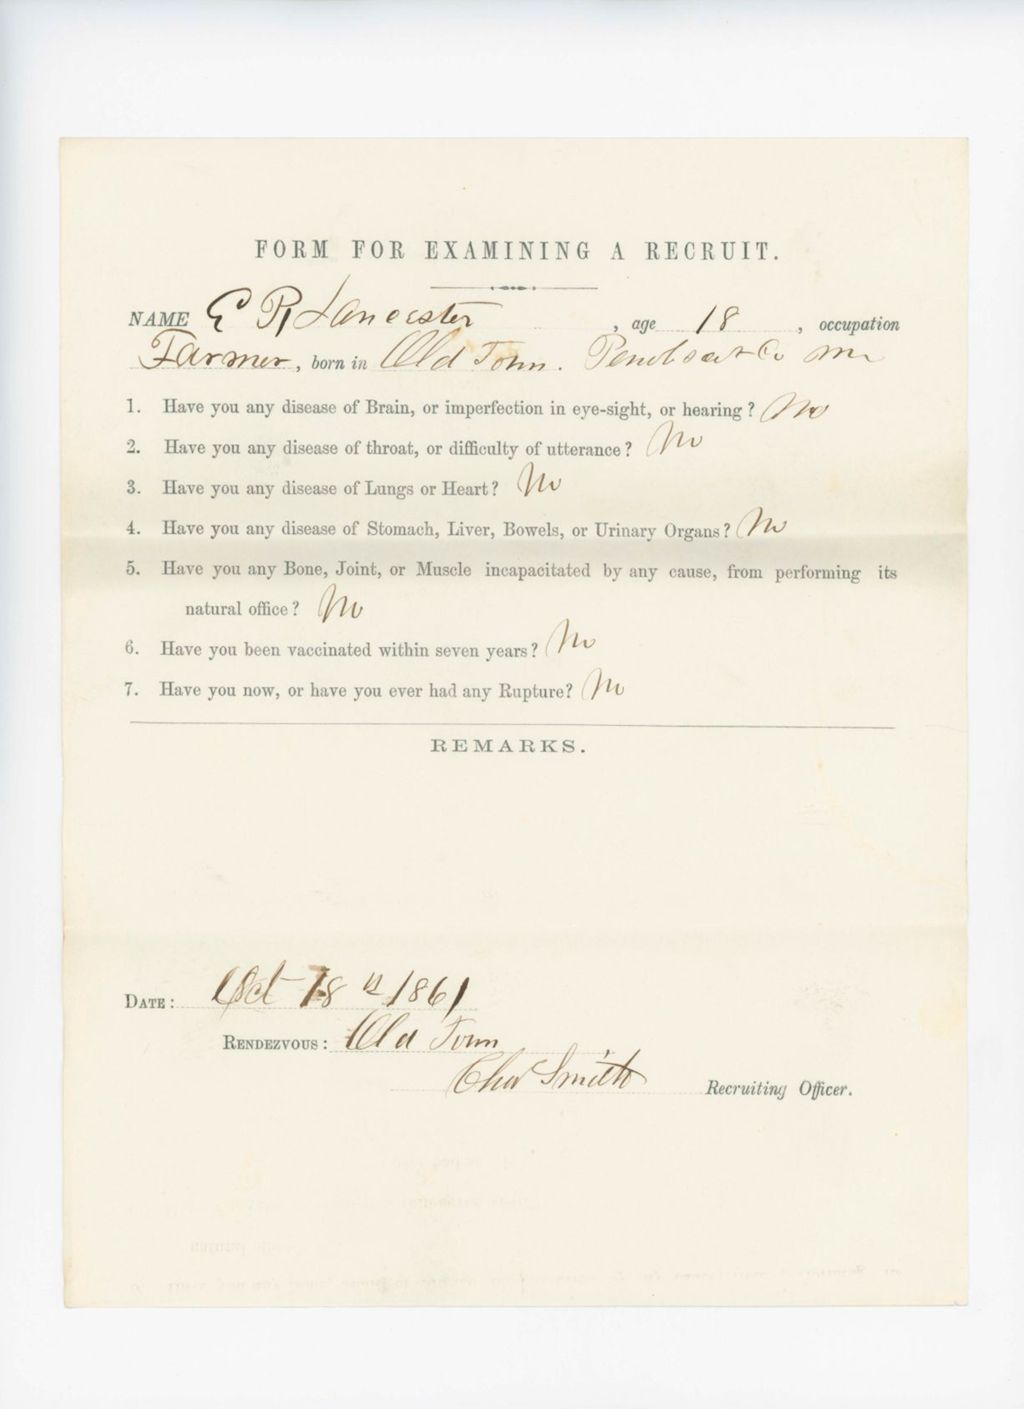 FORM FOR EXAMINING A RECRUIT.
NAME E R Lancester, age 18, occupation
Farmer, born in Old Town. Penobscot Co Me
1. Have you any disease of Brain, or imperfection in eye-sight, or hearing? No
2. Have you any disease of throat, or difficulty of utterance? No
3. Have you any disease of Lungs or Heart? No
4. Have you any disease of Stomach, Liver, Bowels, or Urinary Organs? No
5. Have you any Bone, Joint, or Muscle incapacitated by any cause, from performing its
natural office? No
6. Have you been vaccinated within seven years? No
7. Have you now, or have you ever had any Rupture? No
REMARKS.
DATE: Oct 18th 1861
RENDEZVOUS: Old Town
Chas Smith Recruiting Officer.